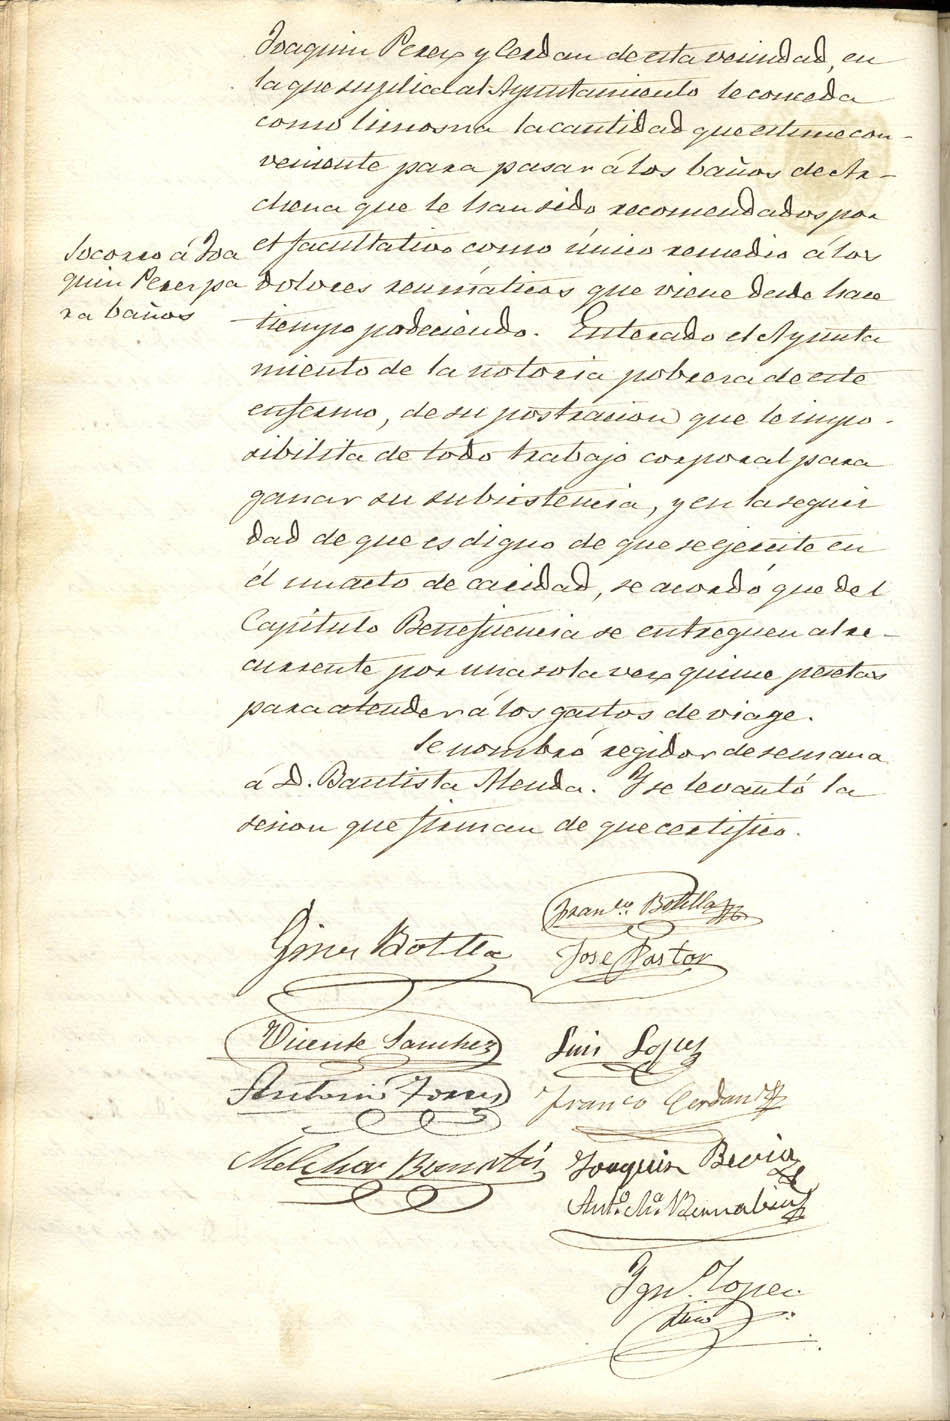 Joaquin Perez y Cerdan de esta vecindad, en
la que suplica al Ayuntamiento le conceda
como limosna la cantidad que estime con-
veniente para pasar á los baños de Ar-
chena que le han sido recomendados por
el facultativo como único remedio á los
dolores reumáticos que viene desde hace
tiempo padeciendo. Enterado el Ayunta
miento de la notoria pobreza de este
enfermo, de su postracion que le impo-
sibilita de todo trabajo corporal para
ganar su subsistencia, y en la seguri
dad de que es digno de que se ejercite en
él un acto de caridad, se acordó que del
Capítulo Beneficencia se entreguen al re-
currente por una sola vez quince pesetas
para atender á los gastos de viage.
Se nombró regidor de semana
á D. Bautista Alenda. Y se levantó la
sesion que firman de que certifico.
Socorro á Joa
quin Perez pa
ra baños
Franco. Botella
Giner Botella
José Pastor
Vicente Sanchez
Luis Lopez
Antonio Torres
Franco Cerdan
Melchor
Joaquin Bevia
Anto. Ma. Bernabeu
Ign. Lopez